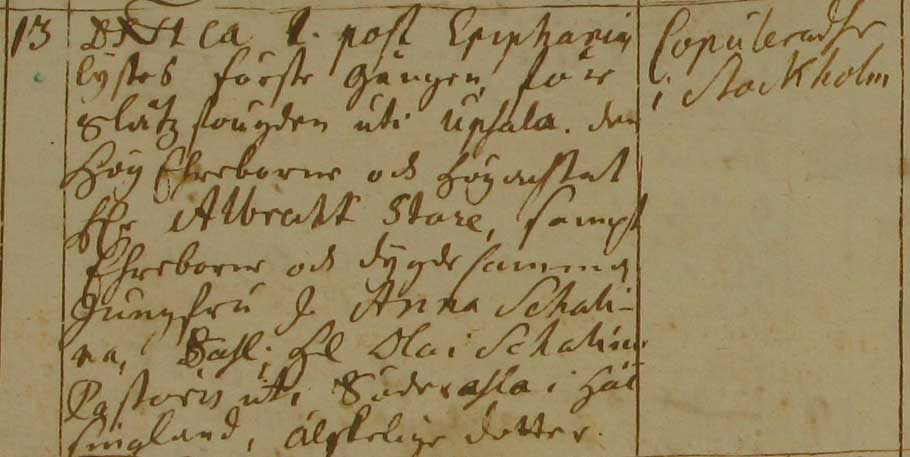 13 Dnica 1. post Epiphaniæ
lystes förste gången före
Slåtz fougden uti Upsala. den
Hög Ehreborne och Högachtat
Hr Albrecht Stare, sampt
Ehreborne och dygdesamma
Jungfru J. Anna Schali-
na, Sahl. Hr Olai Schalini
Pastoris uti Söderahla i Häl
singland, älskelige dotter.
Copulerades
i Stockholm